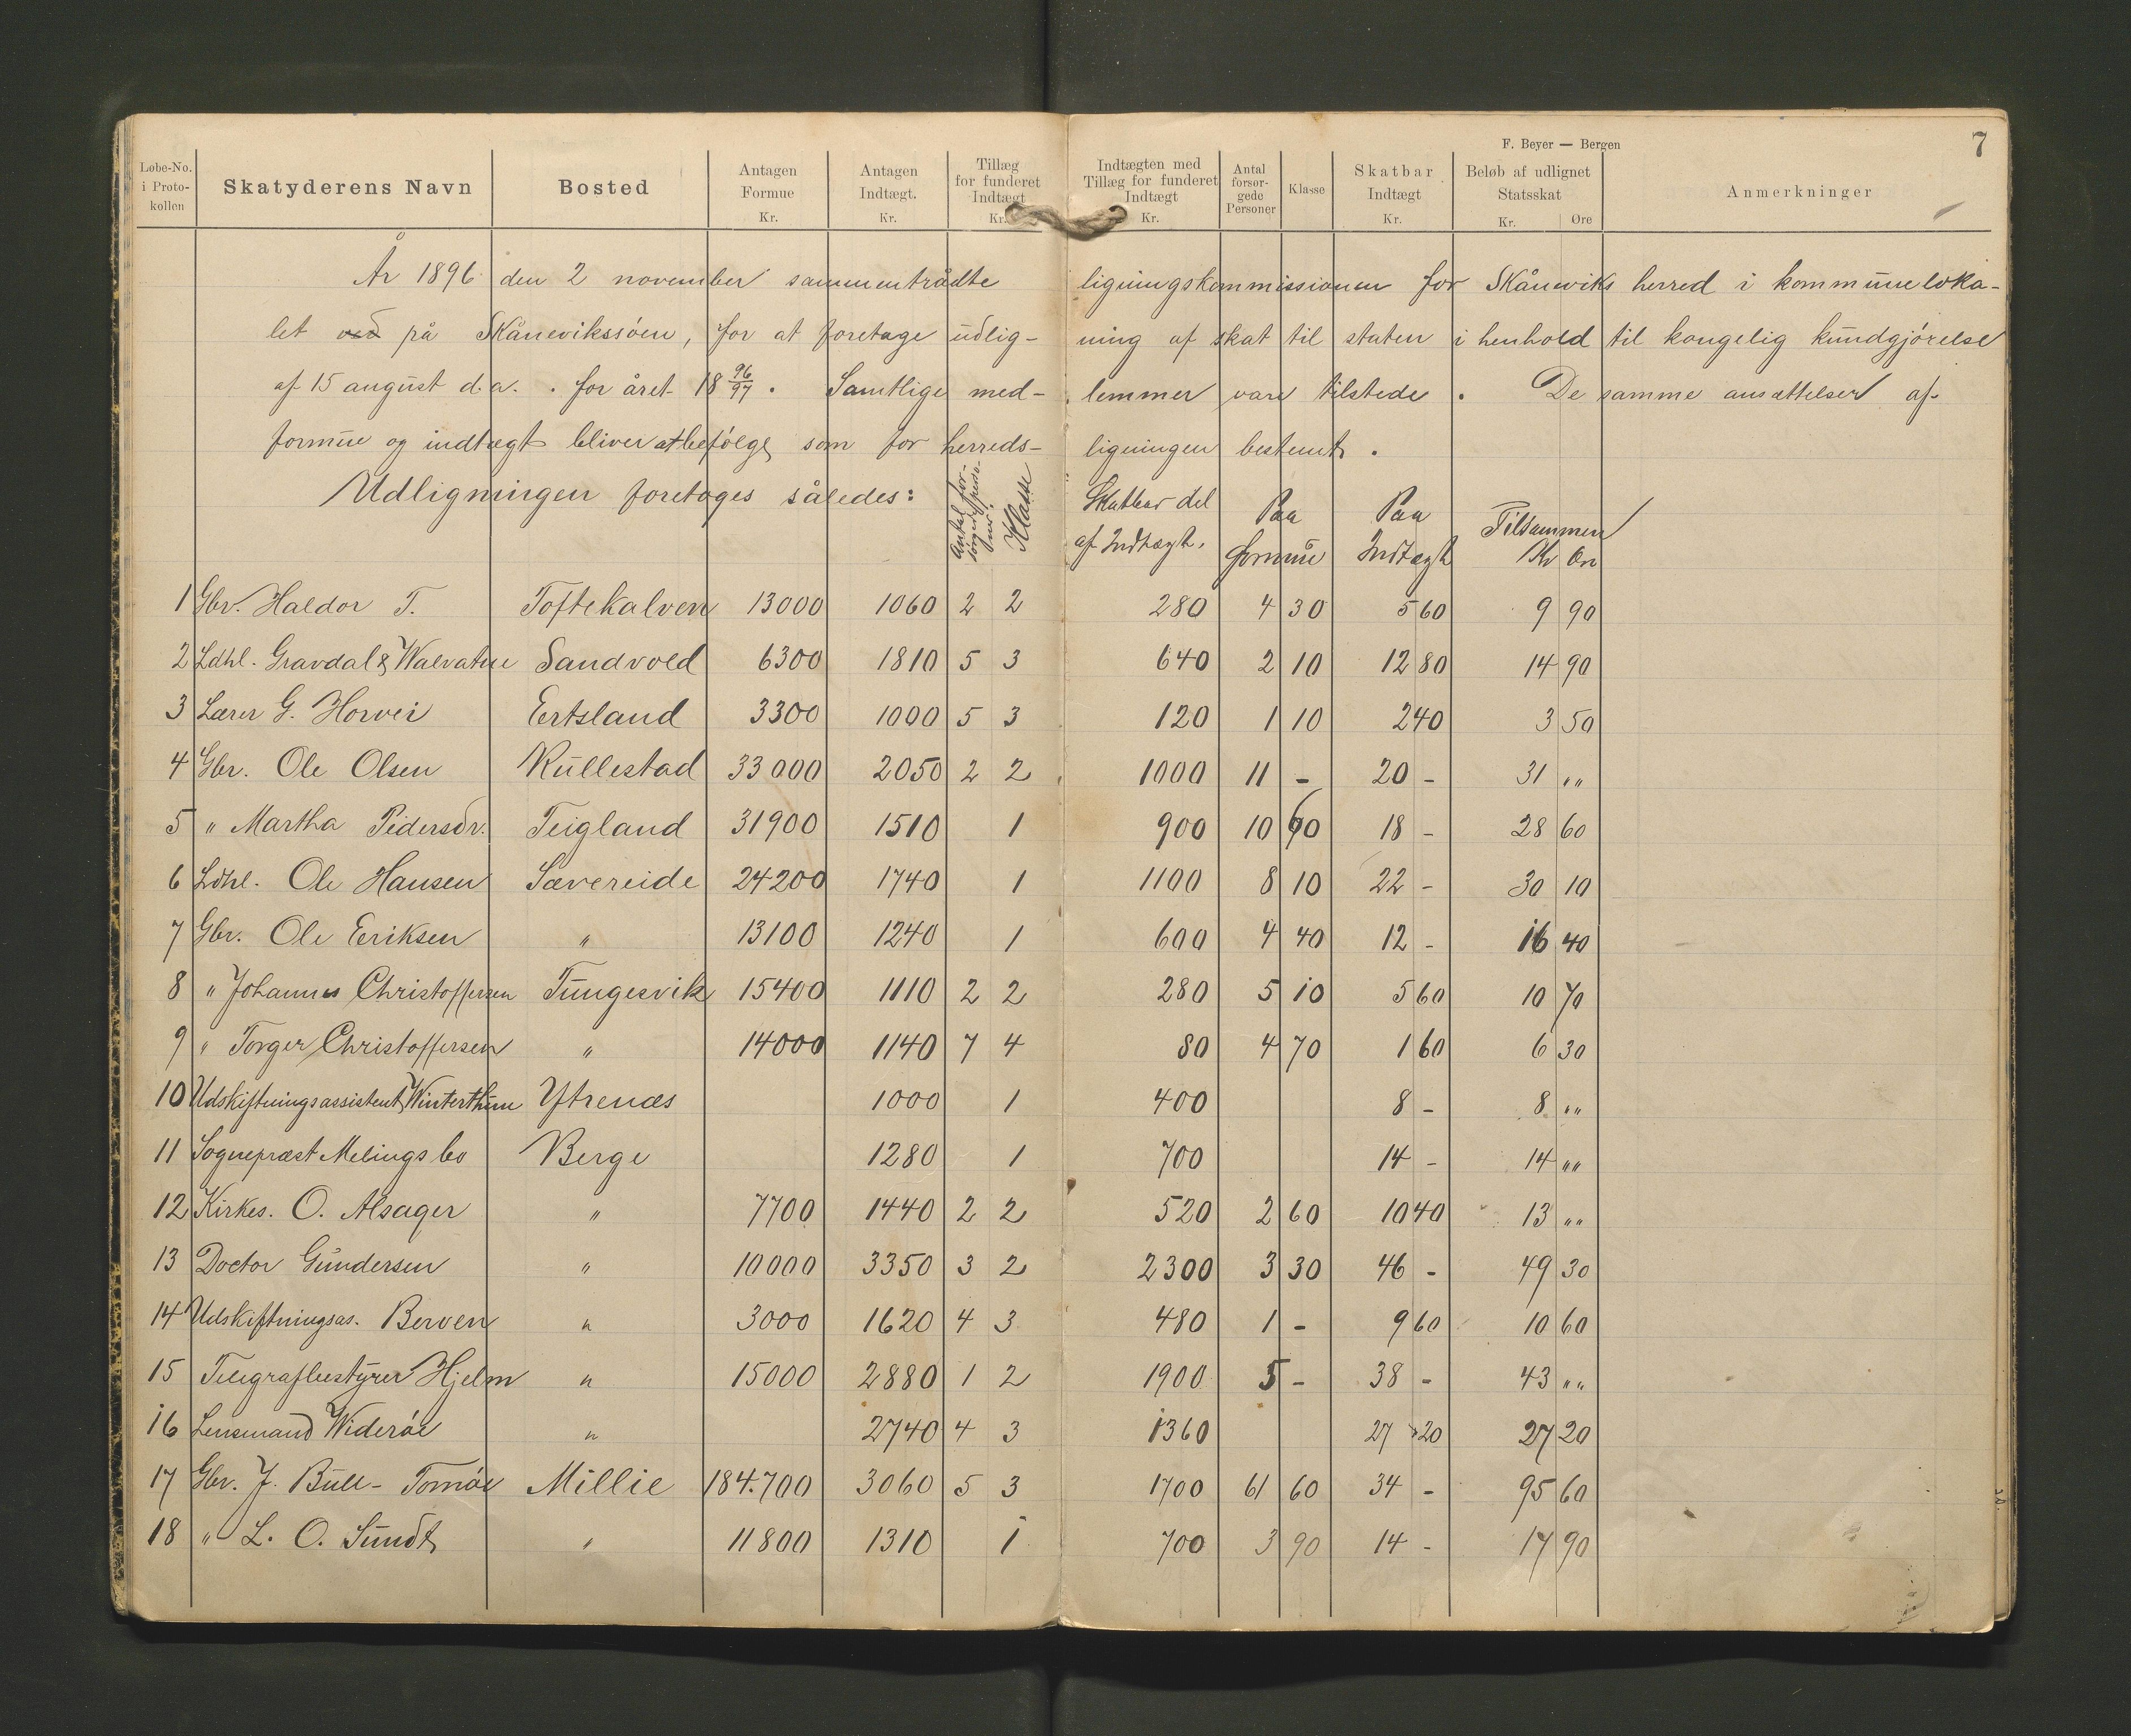 F. Beyer — Bergen
7
Løbe-No. i Protokollen | Skatyderens Navn | Bosted | Antagen Formue Kr. | Antagen Indtægt. Kr. | Tillæg for funderet Indtægt Kr. | Indtægten med Tillæg for funderet Indtægt Kr. | Antal forsørgede Personer | Klasse | Skatbar Indtægt Kr. | Beløb af udlignet Statsskat Kr. Øre | Anmerkninger
År 1896 den 2 november sammentrådte ligningskommissionen for Skånevik​s herred i kommuneloka-
let ved på Skånevikssöen, for at foretage udlig- ning af skat til staten i henhold til kongelig kundgjörelse
af 15 august d.a. . for året 18 96/97 . Samtlige med- lemmer vare tilstede . De samme ansættelser af
formue og indtægt bliver at befölge som for herreds- ligningen bestemt .
Udligningen foretages således: Antal forsørgede personer Klasse Skatbar del af Indtægt. Paa Formue Paa Indtægt Tilsammen Kr Øre
1 Gbr. Haldor T. Toftekalven 13000 1060 2 2 280 4 30 5 60 9 90
2 Ldhl. Gravdal & Walvatne Sandvold 6300 1810 5 3 640 2 10 12 80 14 90
3 Lærer G. Horvei Ertsland 3300 1000 5 3 120 1 10 2 40 3 50
4 Gbr. Ole Olsen Kullestad 33000 2050 2 2 1000 11 - 20 - 31 „
5 „ Martha Pedersdr. Teigland 31900 1510 1 900 10 60 18 - 28 60
6 Ldhl. Ole Hansen Sævereide 24200 1740 1 1100 8 10 22 - 30 10
7 Gbr. Ole Eriksen „ 13100 1240 1 600 4 40 12 - 16 40
8 „ Johannes Christoffersen Tungesvik 15400 1110 2 2 280 5 10 5 60 10 70
9 „ Torger Christoffersen „ 14000 1140 7 4 80 4 70 1 60 6 30
10 Udskiftningsassistent Winterthun Ytrenæs 1000 1 400 8 - 8 „
11 Sognepræst Melingsbo Berge 1280 1 700 14 - 14 „
12 Kirkes. O. Alsager „ 7700 1440 2 2 520 2 60 10 40 13 „
13 Doctor Gundersen „ 10000 3350 3 2 2300 3 30 46 - 49 30
14 Udskiftningsas. Berven „ 3000 1620 4 3 480 1 - 9 60 10 60
15 Telegrafbestyrer Hjelm „ 15000 2880 1 2 1900 5 - 38 - 43 „
16 Lensmand Wideröe „ 2740 4 3 1360 27 20 27 20
17 Gbr. J. Bull-Tornöe Millie 184.700 3060 5 3 1700 61 60 34 - 95 60
18 „ L. O. Sundt „ 11800 1310 1 700 3 90 14 - 17 90